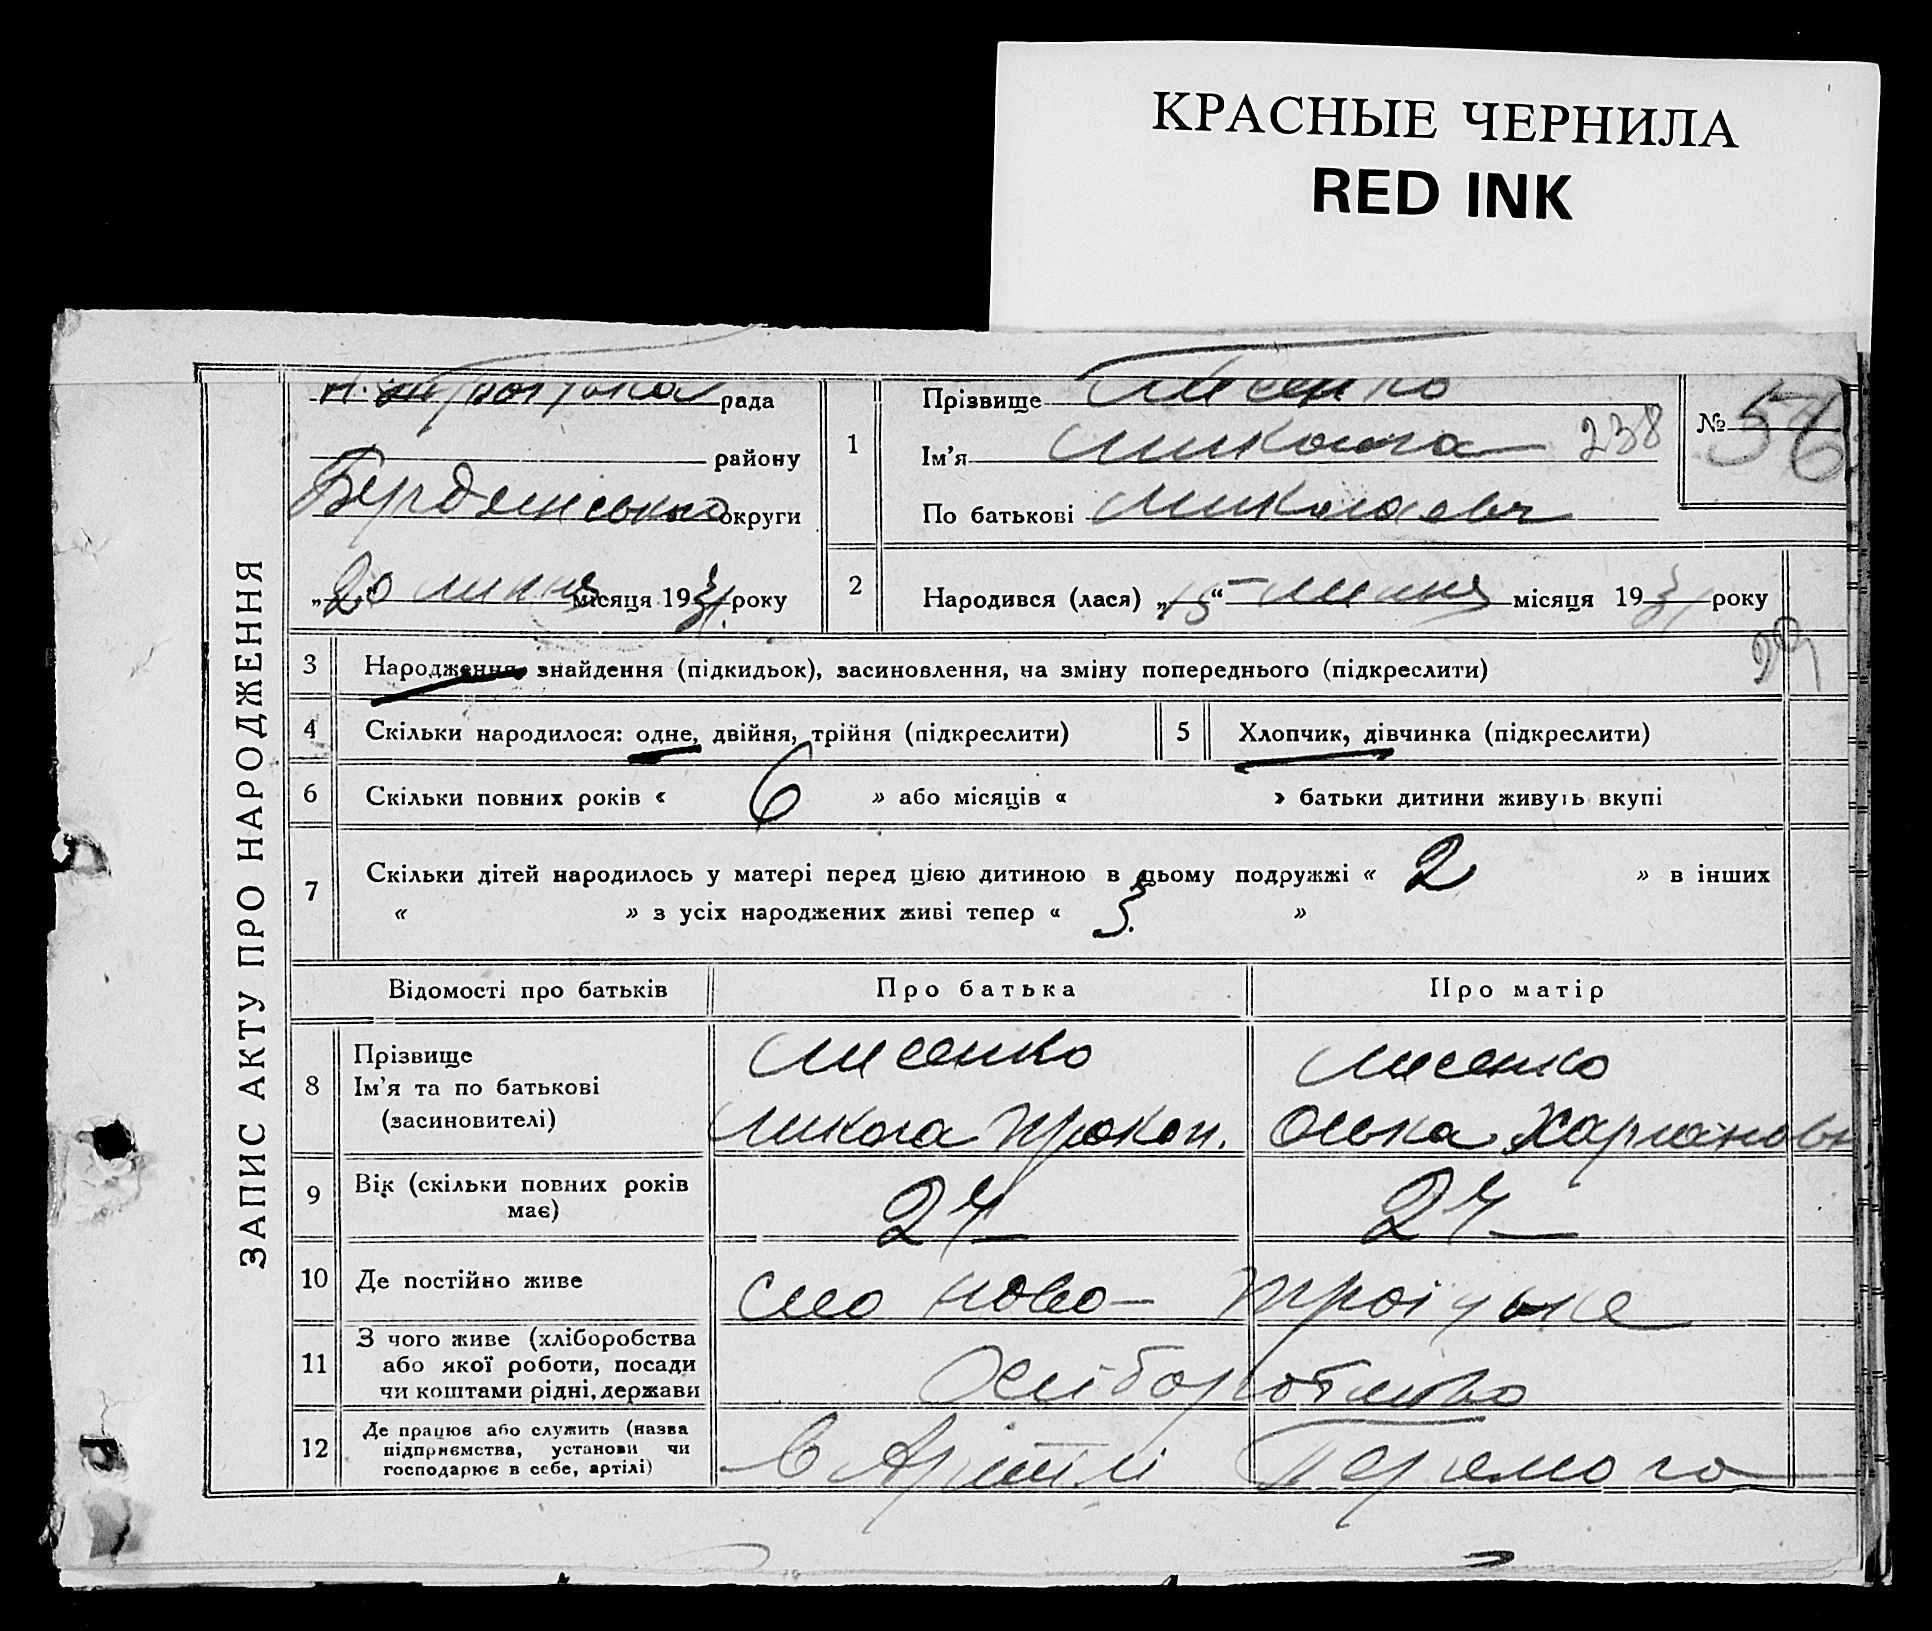 КРАСНЫЕ ЧЕРНИЛА
RED INK
ЗАПИС АКТУ ПРО НАРОДЖЕННЯ
рада
району
Бердянсько округи
„20“ липня місяця 1931 року
1
Прізвище Лисенко
Ім'я Микола 238
По батькові Миколаєвч
№ 56
2
Народився (лася) „15“ липня місяця 1931 року
3 Народження, знайдення (підкидьок), засиновлення, на зміну попереднього (підкреслити)
4 Скільки народилося: одне, двійня, трійня (підкреслити)
5 Хлопчик, дівчинка (підкреслити)
6 Скільки повних років « 6 » або місяців « » батьки дитини живуть вкупі
7 Скільки дітей народилось у матері перед цією дитиною в цьому подружжі « 2 » в інших
« » з усіх народжених живі тепер « 3. »
Відомості про батьків Про батька Про матір
8 Прізвище
Ім'я та по батькові
(засиновителі)
Лисенко
Микола Прокоп.
Лисенко
Олька
9 Вік (скільки повних років
має)
24
24
10 Де постійно живе
село Ново- Троіцьке
11 З чого живе (хліборобства
або якої роботи, посади
чи коштами рідні, держави
Хліборобство
12 Де працює або служить (назва
підприємства, установи чи
господарює в себе, артілі)
в Артілі Перемога